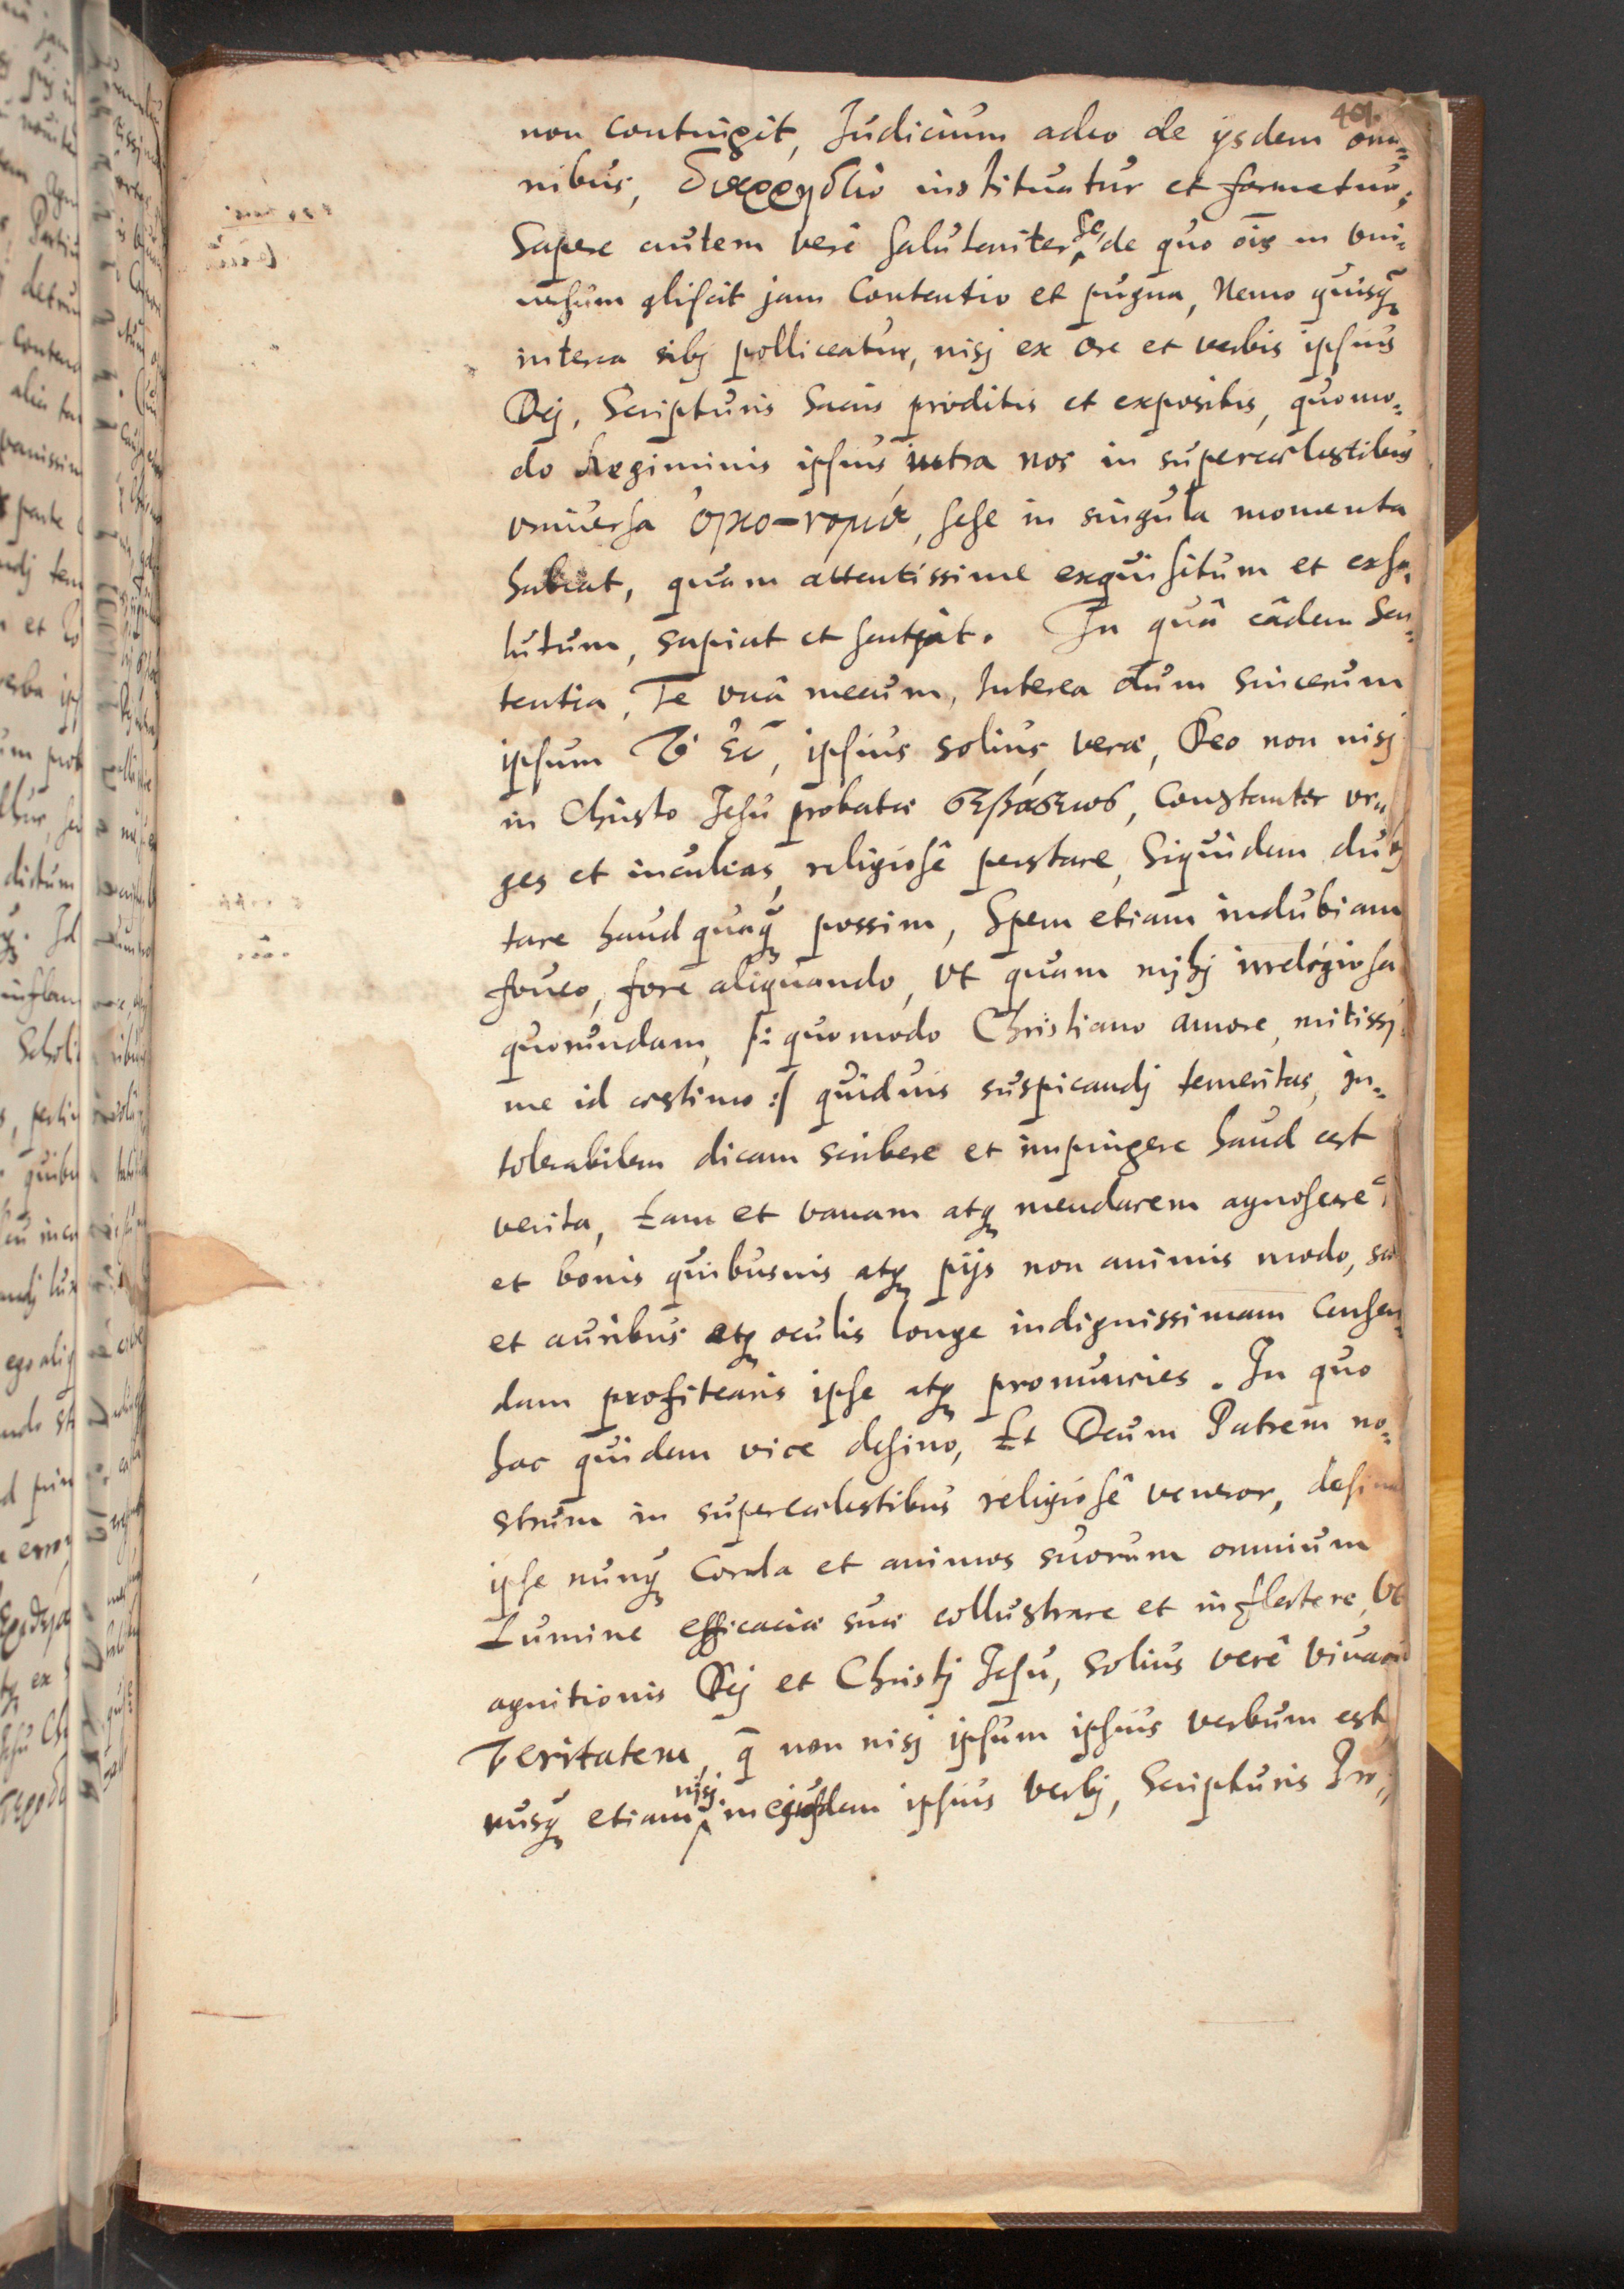 401.
non contingit, Iudicium adeo de ijsdem om¬
nibus, διαῤῥήδlω instituatur et formetur;
Sapere autem verè salutariter se, de quo ois in vni¬
uersum gliscit jam Contentio et pugna, Nemo quisq̃
interea sibj polliceatur, nisj ex Ore et verbis ipsius
Dej, Scripturis Sacris proditis et expositis, quomo¬
do Regiminis ipsius intra nos in supercœlestibus
vniuersa οἰκο-νομία, sese in singula momenta
habeat, quam attentissime exquisitum et exso¬
lutum, sapiat et sentiat. In quâ eâdem Sen¬
tentia, Te vnâ mecum, Interea dum sincerum
ipsum Τὸ Ἓν, ipsius solius veræ, Deo non nisj
in Christo Jesu probatæ σεβάσεως, Constanter vr¬
ges et inculcas, religiosè perstare, Siquidem dubj
tare haudquaq̃ possim, Spem etiam indubiam
foueo, fore aliquando, vt quam mihj irreligiosa
quorundam, /: quomodo Christiano amore, mitissi
me id æstimo :/ quiduis suspicandj temeritas, in¬
tolerabilem dicam scribere et impingere haud est
verita, Eam et vanam atq̃ mendacem agnoscere,
et bonis quibusuis atq̃ pijs non animis modo, sed
et auribus atq̃ oculis longe indignissimam Censen¬
dam profitearis ipse atq̃ pronuncies. In quo
hac quidem vice desino, Et Deum Patrem no¬
strum in supercœlestibus religiosè veneror, desinat
ipse nunq̃ Corda et animos suorum omnium
Lumine efficaciæ suæ collustrare et inflectere, Vt
agnitionis Dej et Christj Jesu, Solius verè viuam
Veritatem, q̃ non nisj ipsum ipsius verbum est,
nusq̃ etiam nisj in ejusdem ipsius Verbj, Scripturis Pro¬